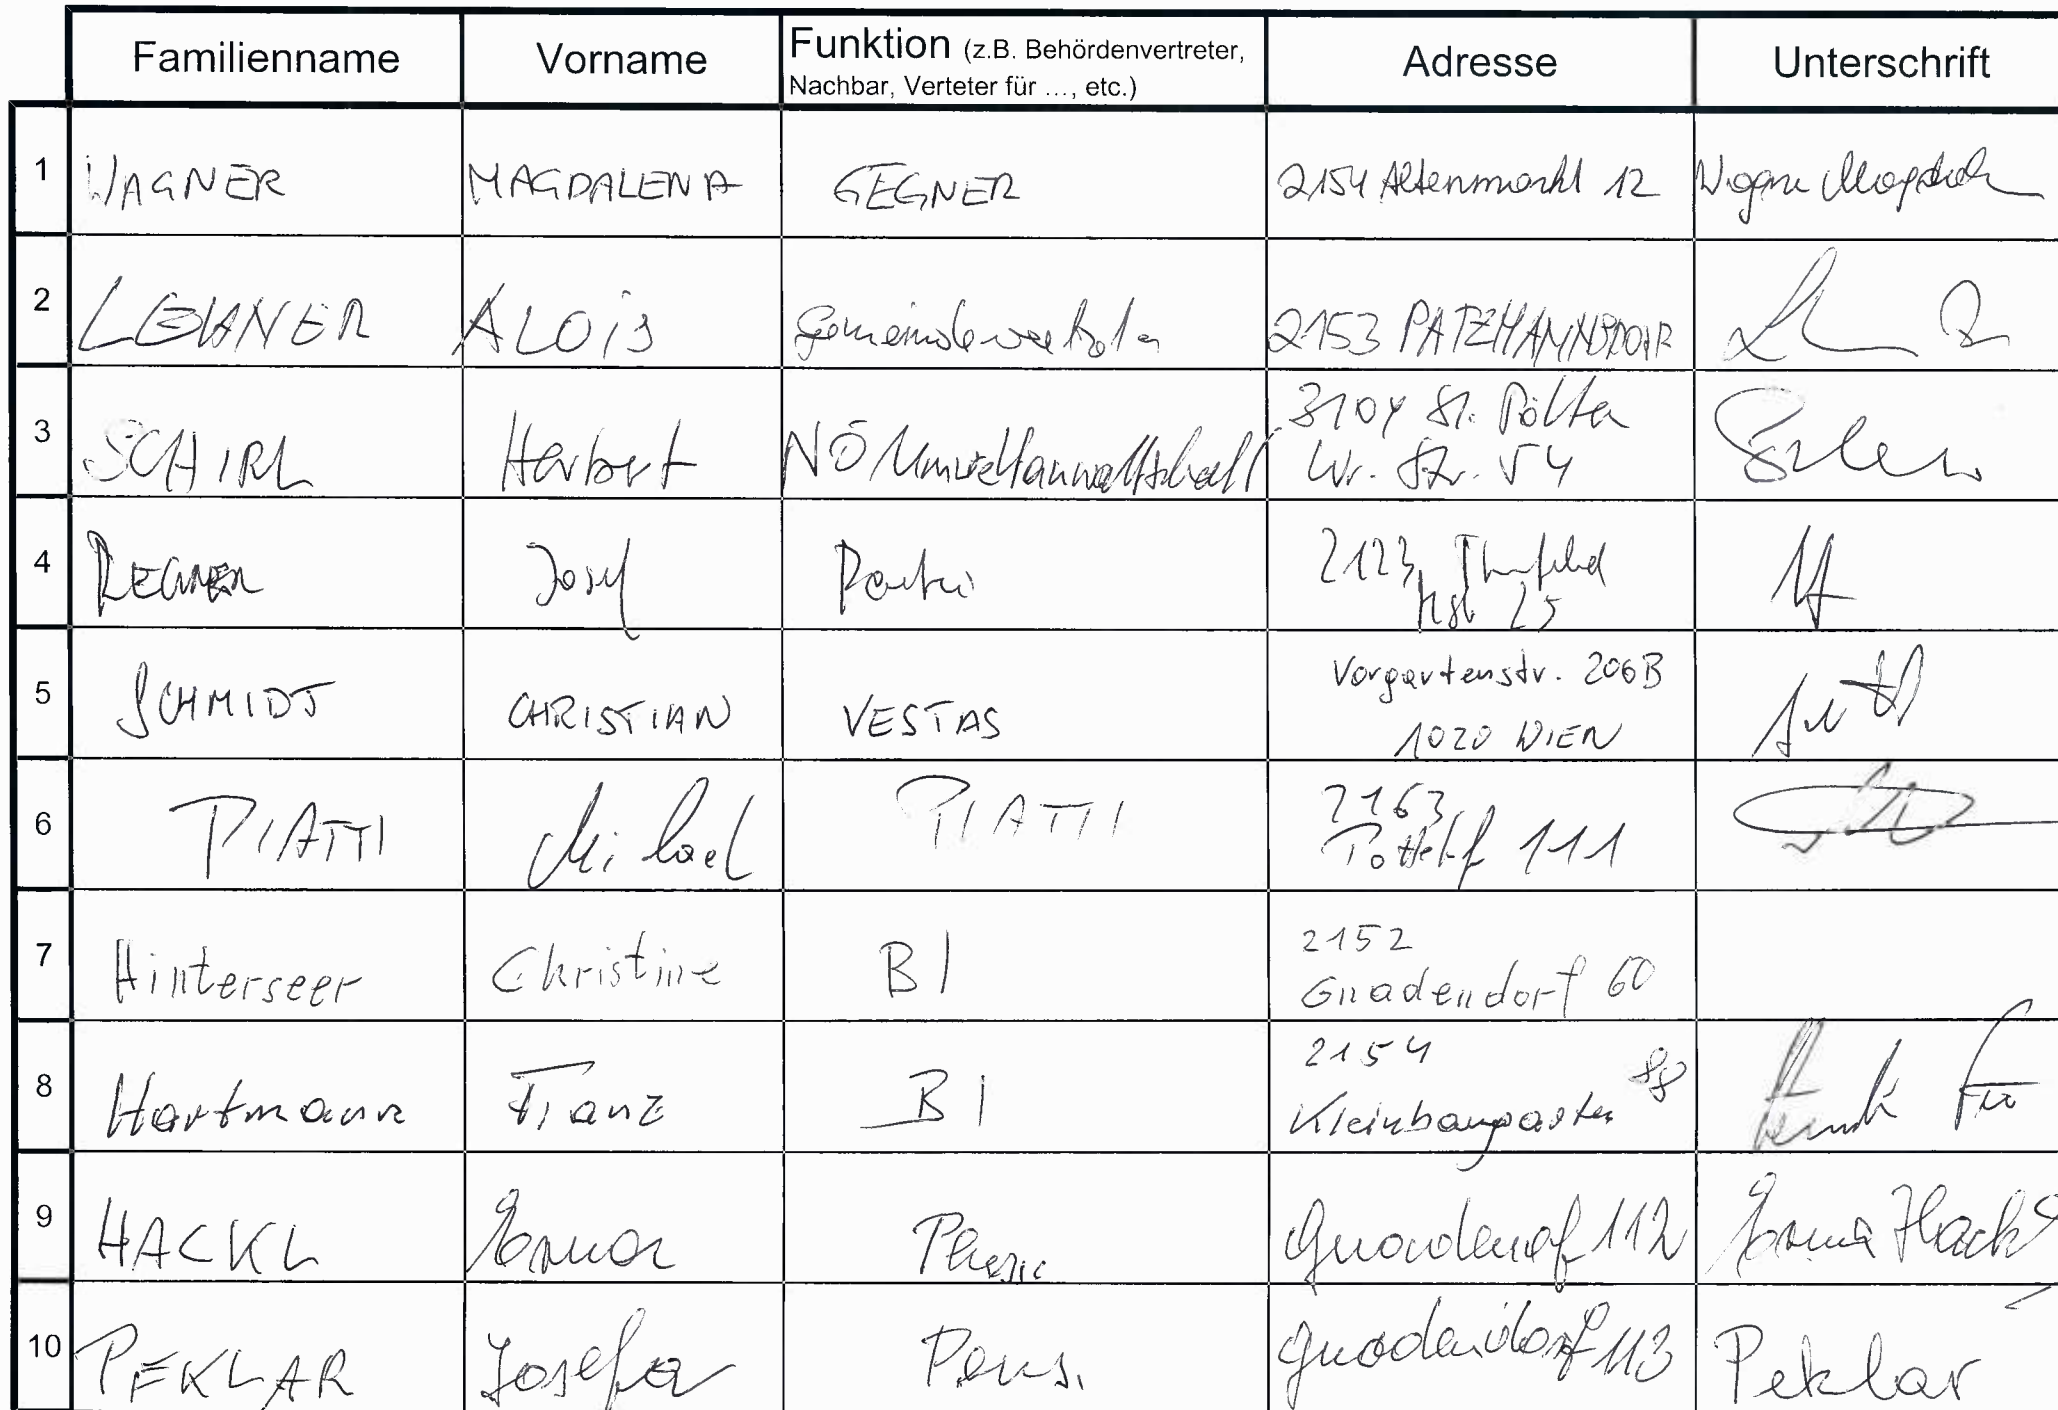 Familienname Vorname Funktion (z.B. Behördenvertreter, Nachbar, Verteter für ..., etc.) Adresse Unterschrift
1 WAGNER MAGDALENA GEGNER 2154 Altenmarkt 12
2 ALOIS 2153
3 SCHIRL Herbert NÖ Umweltanwaltschaft 3104 St. Pölten
Wr. Str. 54
4 Josef 2123
25
5 SCHMIDT CHRISTIAN VESTAS Vorgartenstr. 206B
1020 WIEN
6 PIATTI Michael PIATTI 2163
111
7 Hinterseer Christine BI 2152
Gnadendorf 60
8 Hartmann Franz BI 2154 88
Kleinbaumgarten
9 HACKL Erna 112 Hackl
10 PEKLAR Josefa Pens. Gnadendorf 113 Peklar